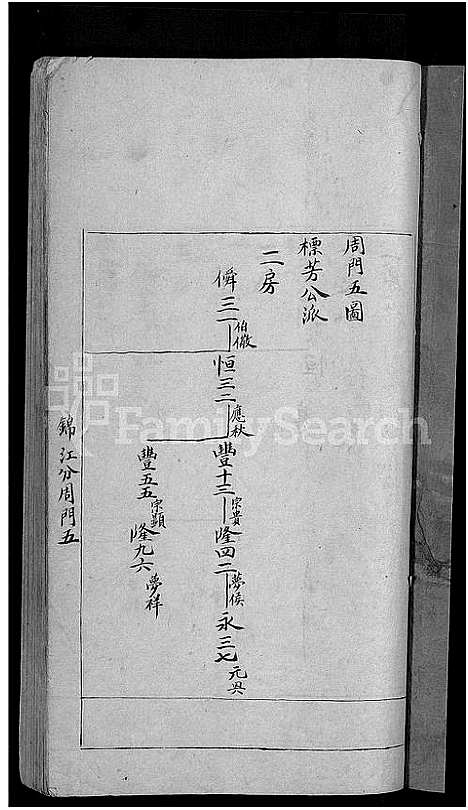 周門五圖
標芳公派
二房
僯三一 伯儆 恒三二 應秋 豐十三 宗貴 隆四二 夢俟 永三七 元兴
豐五五 宗顯 隆九六 夢祥
錦江分周門五
FamilySearch